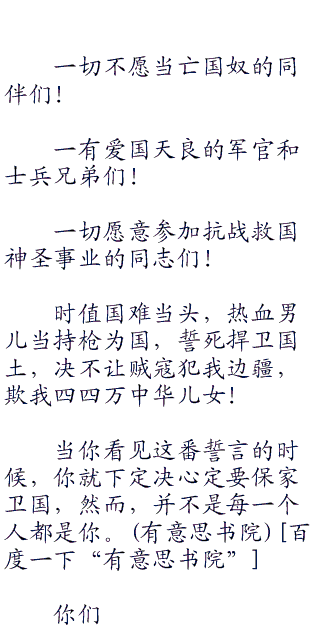 一切不愿当亡国奴的同
伴们！
一有爱国天良的军官和
士兵兄弟们！
一切愿意参加抗战救国
神圣事业的同志们！
时值国难当头，热血男
儿当持枪为国，誓死捍卫国
土，决不让贼寇犯我边疆，
欺我四四万中华儿女！
当你看见这番誓言的时
候，你就下定决心定要保家
卫国，然而，并不是每一个
人都是你。(有意思书院)[百
度一下“有意思书院”]
你们